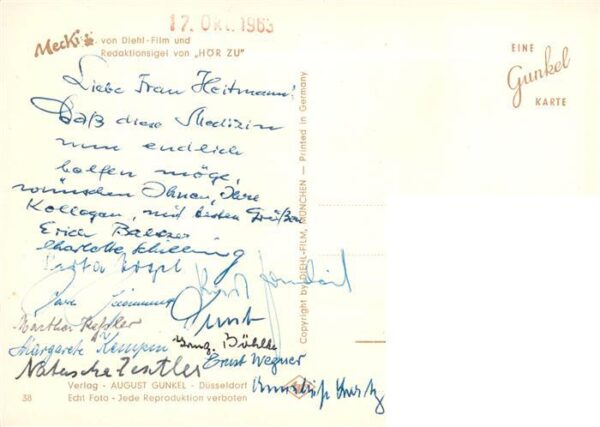 17. Okt. 1963
Mecki von Diehl-Film und
Redaktionsigel von „HÖR ZU"
EINE
Gunkel
KARTE
Liebe Frau Heitmann!
Daß diese Medizin
nun endlich
helfen möge,
wünschen Ihnen, Ihre
Kollegen, mit besten Grüßen
Erich
Charlotte Schilling
Kurt
Martha Keßler
Margarete Kempin
Ernst Wegner
Natascha Zestler
Copyright by DIEHL-FILM, MÜNCHEN — Printed in Germany
Verlag - AUGUST GUNKEL - Düsseldorf
38 Echt Foto - Jede Reproduktion verboten